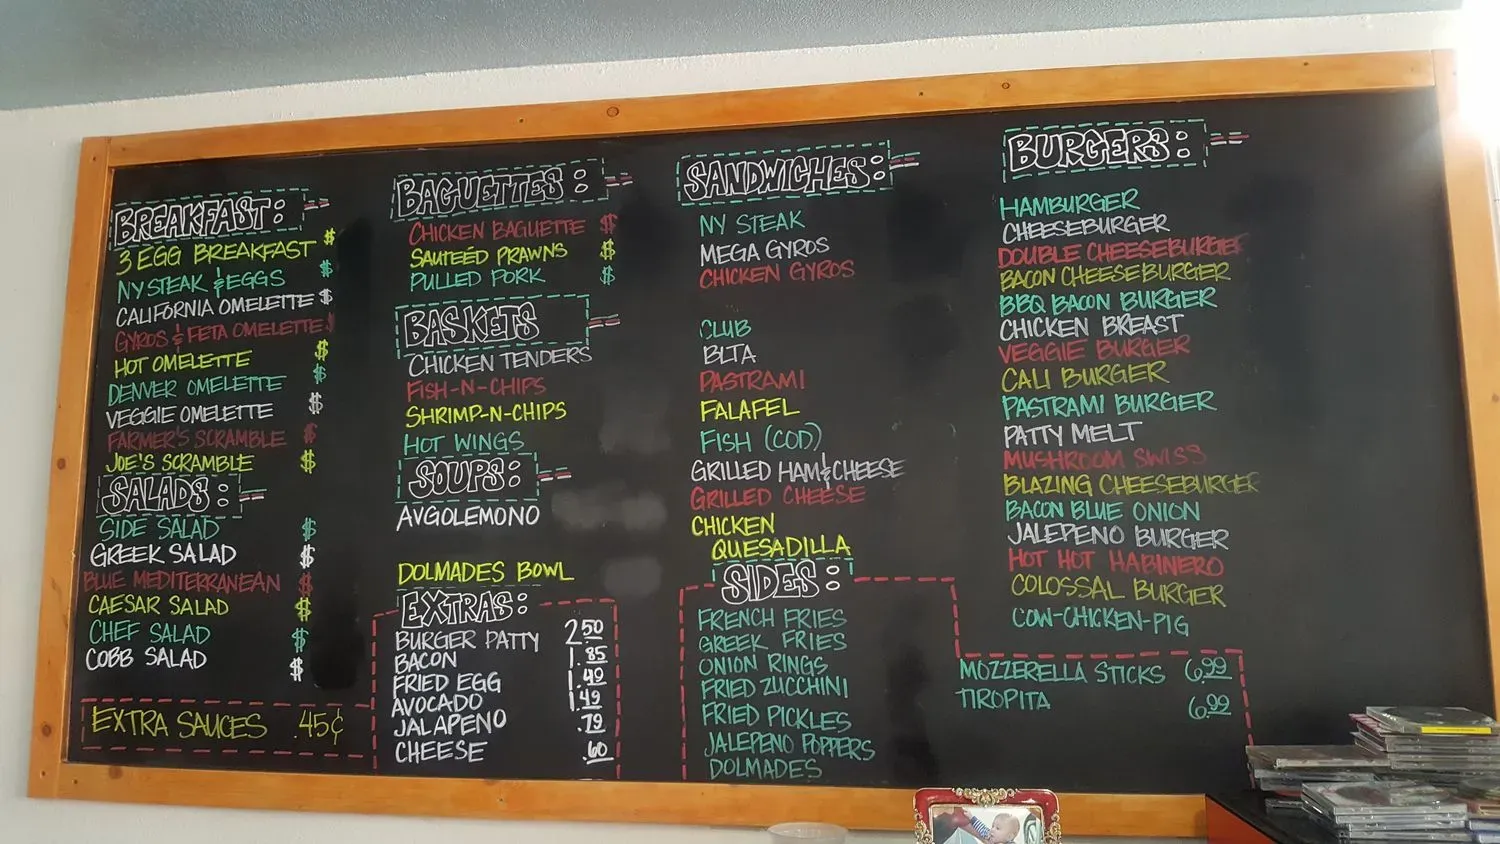 BREAKFAST:
3 EGG BREAKFAST $
NY STEAK & EGGS $
CALIFORNIA OMELETTE $
GYROS & FETA OMELETTE $
HOT OMELETTE $
DENVER OMELETTE $
VEGGIE OMELETTE $
FARMER'S SCRAMBLE $
JOE'S SCRAMBLE $
SALADS:
SIDE SALAD $
GREEK SALAD $
BLUE MEDITERRANEAN $
CAESAR SALAD $
CHEF SALAD $
COBB SALAD $
EXTRA SAUCES .45¢
BAGUETTES:
CHICKEN BAGUETTE $
SAUTEÉD PRAWNS $
PULLED PORK $
BASKETS
CHICKEN TENDERS
FISH-N-CHIPS
SHRIMP-N-CHIPS
HOT WINGS
SOUPS:
AVGOLEMONO
DOLMADES BOWL
EXTRAS:
BURGER PATTY 2.50
BACON 1.85
FRIED EGG 1.49
AVOCADO 1.49
JALAPENO .79
CHEESE .60
SANDWICHES:
NY STEAK
MEGA GYROS
CHICKEN GYROS
CLUB
BLTA
PASTRAMI
FALAFEL
FISH (COD)
GRILLED HAM & CHEESE
GRILLED CHEESE
CHICKEN
QUESADILLA
SIDES:
FRENCH FRIES
GREEK FRIES
ONION RINGS
FRIED ZUCCHINI
FRIED PICKLES
JALEPENO POPPERS
DOLMADES
MOZZERELLA STICKS 6.99
TIROPITA 6.99
BURGERS:
HAMBURGER
CHEESEBURGER
DOUBLE CHEESEBURGER
BACON CHEESEBURGER
BBQ BACON BURGER
CHICKEN BREAST
VEGGIE BURGER
CALI BURGER
PASTRAMI BURGER
PATTY MELT
MUSHROOM SWISS
BLAZING CHEESEBURGER
BACON BLUE ONION
JALEPENO BURGER
HOT HOT HABINERO
COLOSSAL BURGER
COW-CHICKEN-PIG